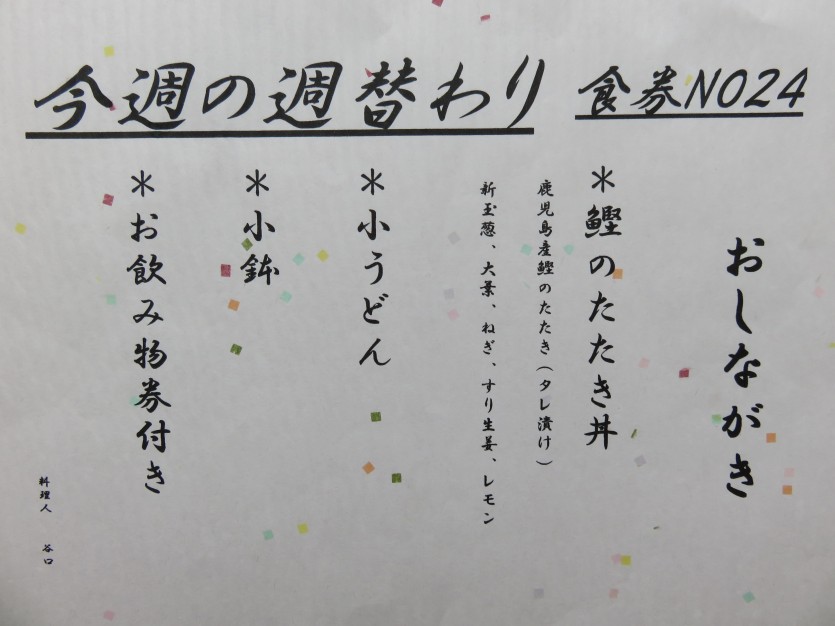 今週の週替わり
食券NO24
おしながき
＊鰹のたたき丼
鹿児島産鰹のたたき(タレ漬け)
新玉葱、大葉、ねぎ、すり生姜、レモン
＊小うどん
＊小鉢
＊お飲み物券付き
料理人 谷口